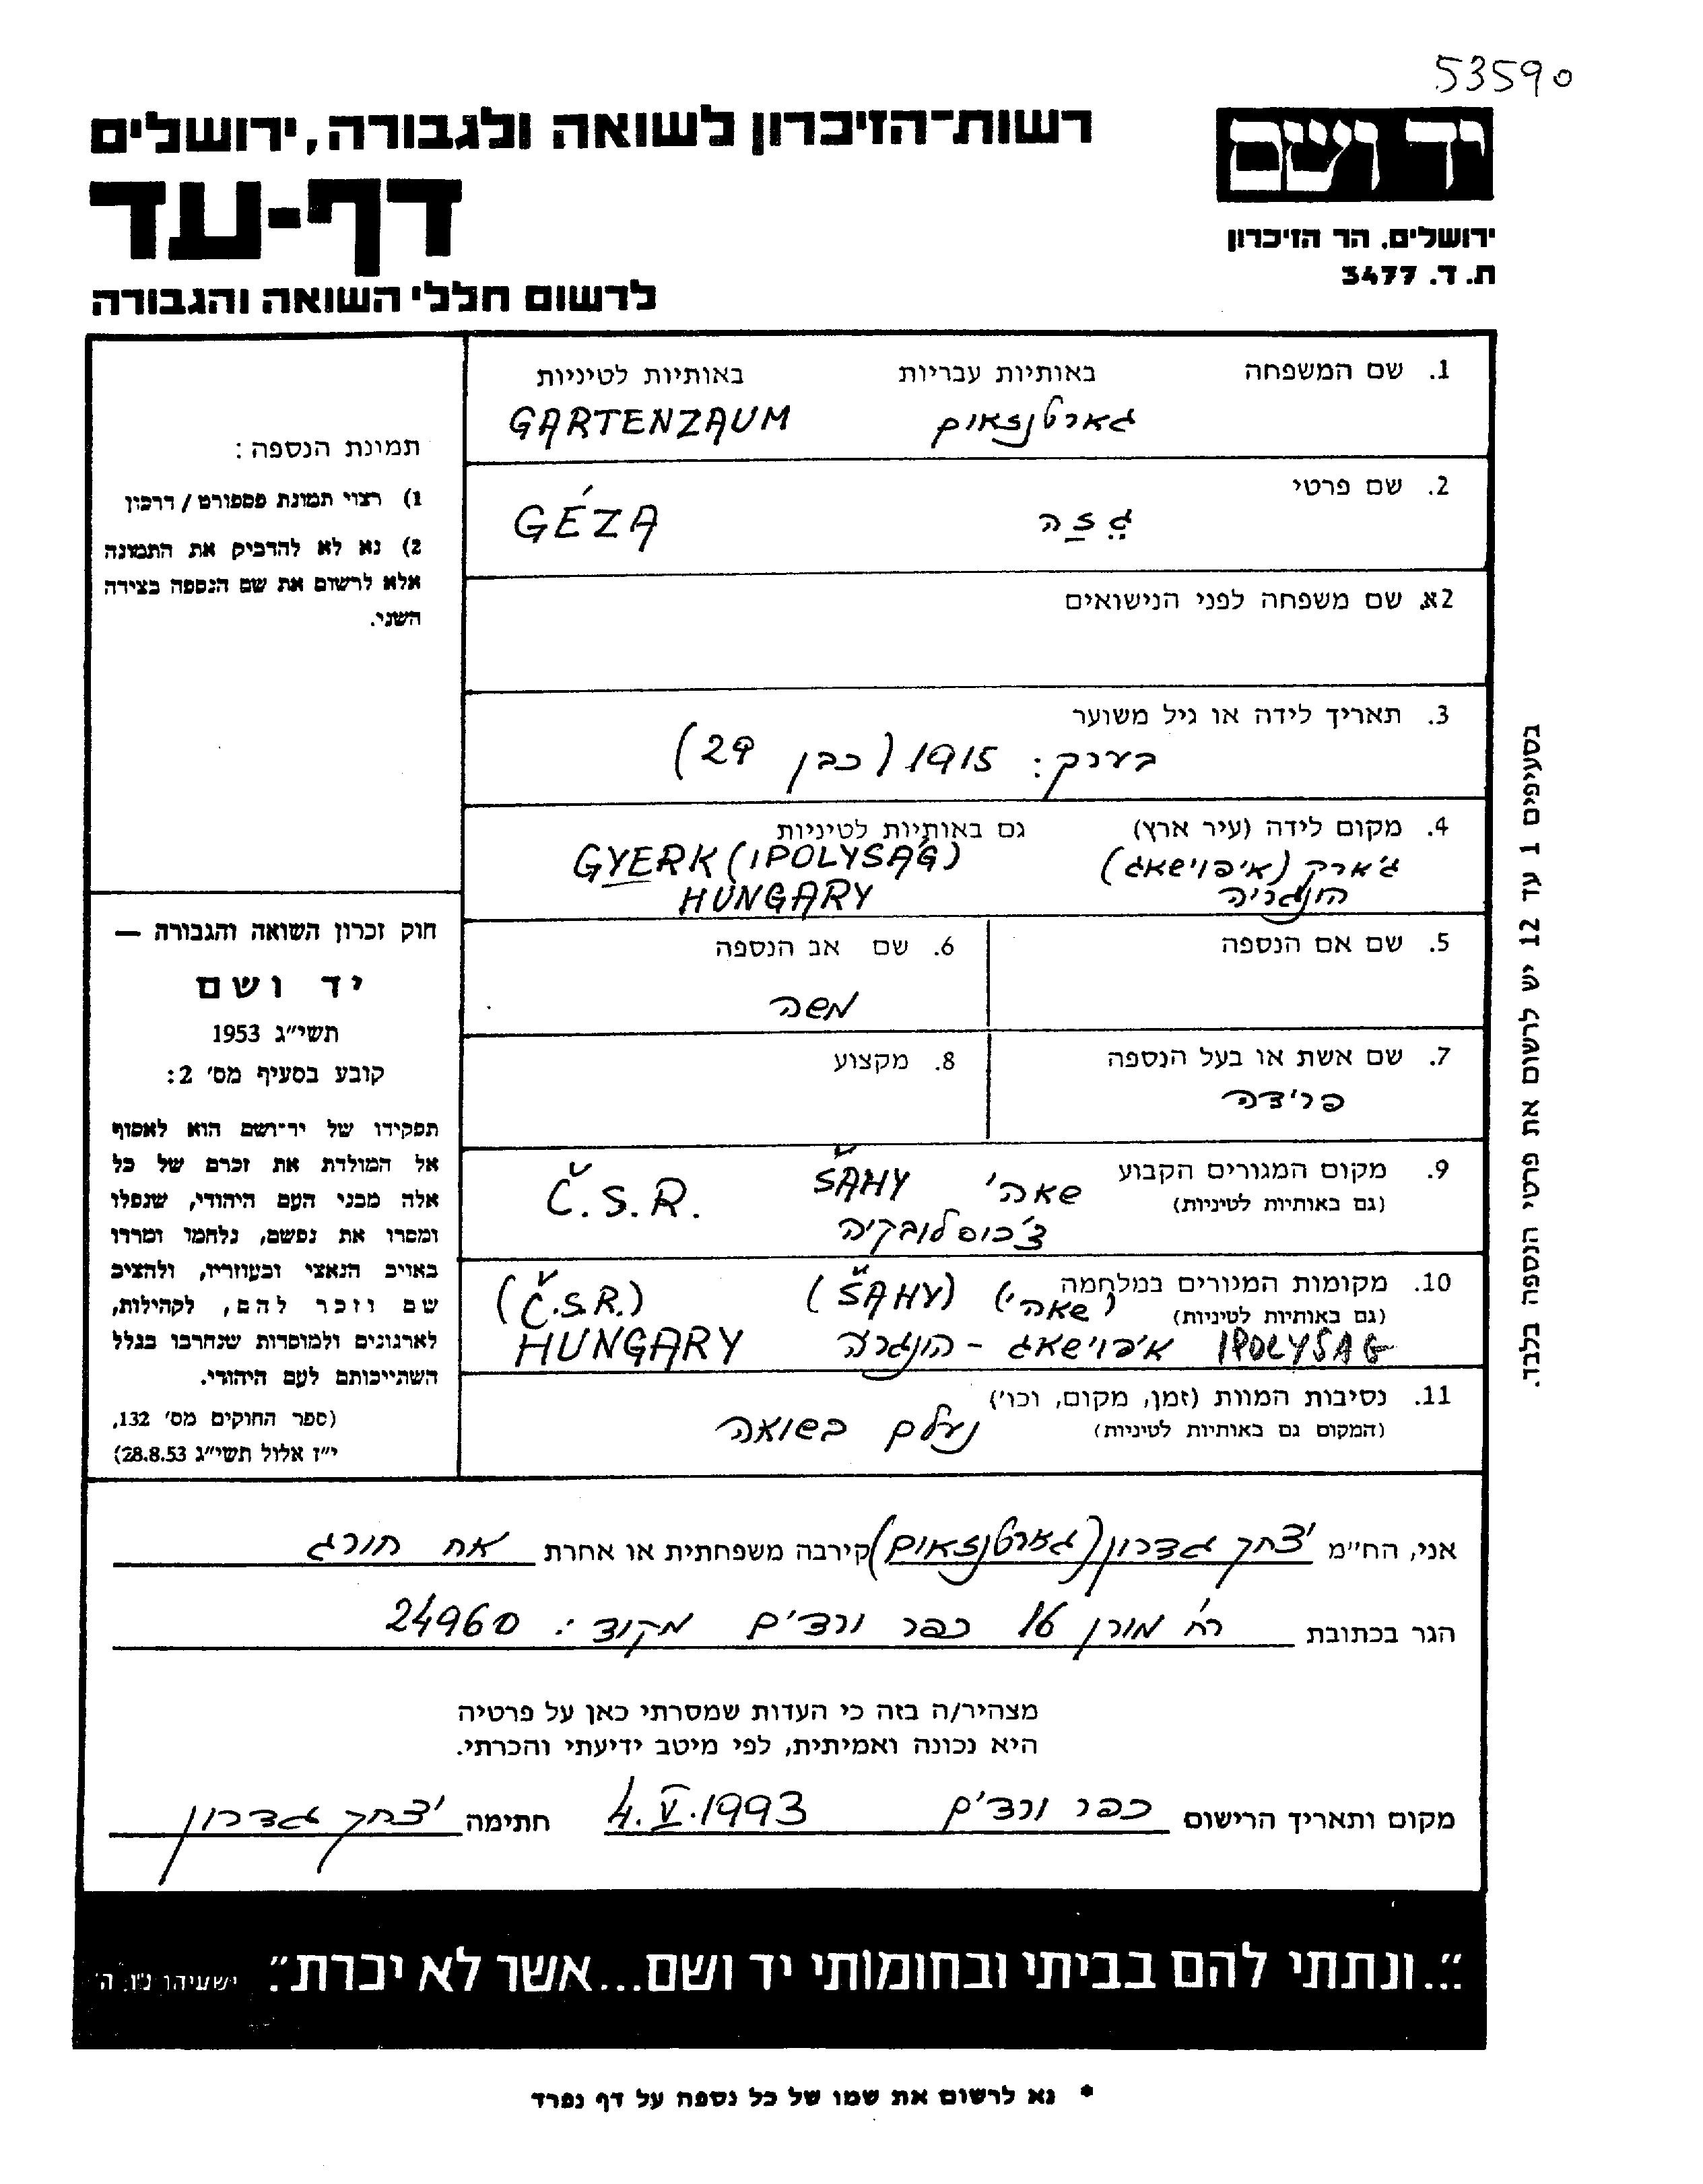 53590
יד ושם
רשות־הזיכרון לשואה ולגבורה, ירושלים
דף-עד
ירושלים, הר הזיכרון
ת. ד. 3477
לרשום חללי השואה והגבורה
1. שם המשפחה באותיות עבריות באותיות לטיניות
גארטנזאום GARTENZAUM
2. שם פרטי
גזה GÉZA
2א. שם משפחה לפני הנישואים
3. תאריך לידה או גיל משוער
בערך: 1915 (כבן 29)
4. מקום לידה (עיר ארץ) גם באותיות לטיניות
ג'ארק (איפוישאג) GYERK (IPOLYSÁG)
הונגריה HUNGARY
5. שם אם הנספה
6. שם אב הנספה
משה
7. שם אשת או בעל הנספה
פרידה
8. מקצוע
9. מקום המגורים הקבוע
(גם באותיות לטיניות)
שאהי ŠAHY Č.S.R.
צ'כוסלובקיה
10. מקומות המגורים במלחמה
(גם באותיות לטיניות)
(שאהי) (ŠAHY) (Č.S.R.)
IPOLYSAG איפוישאג - הונגריה HUNGARY
11. נסיבות המוות (זמן, מקום, וכו')
(המקום גם באותיות לטיניות)
נעלם בשואה
תמינת הנספה:
1) רצוי תמונת פספורט / דרכון
2) נא לא להדביק את התמונה
אלא לרשום את שם הנספה בצידה
השני.
חוק זכרון השואה והגבורה —
יד ושם
תשי"ג 1953
קובע בסעיף מס' 2:
תפקידו של יד־ושם הוא לאסוף
אל המולדת את זכרם של כל
אלה מבני העם היהודי, שנפלו
ומסרו את נפשם, נלחמו ומרדו
באויב הנאצי ובעוזריו, ולהציב
שם וזכר להם, לקהילות,
לארגונים ולמוסדות שנחרבו בגלל
השתייכותם לעם היהודי.
(ספר החוקים מס' 132,
י"ז אלול תשי"ג 28.8.53)
בסעיפים 1 עד 12 יש לרשום את פרטי הנספה בלבד.
אני, הח"מ יצחק גדרון (גארטנזאום) קירבה משפחתית או אחרת אח חורג
הגר בכתובת רח' מורן 16 כפר ורדים מקוד: 24960
מצהיר/ה בזה כי העדות שמסרתי כאן על פרטיה
היא נכונה ואמיתית, לפי מיטב ידיעתי והכרתי.
מקום ותאריך הרישום כפר ורדים 4.V.1993 חתימה יצחק גדרון
"...ונתתי להם בביתי ובחומותי יד ושם...אשר לא יכרת". ישעיהו נ"ו, ה'
* נא לרשום את שמו של כל נספה על דף נפרד